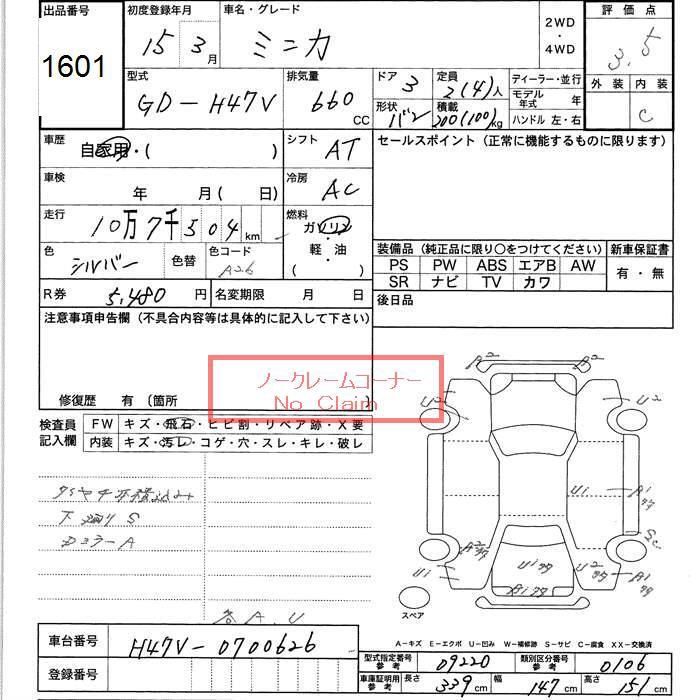 出品番号 初度登録年月 車名・グレード 2WD ・ 4WD 評価点
1601 15 3月 ミニカ 3.5
型式 排気量 ドア 3 定員 2(4)人 ディーラー・並行 外装 内装
GD-H47V 660 CC 形状 バン 積載 200(100)kg モデル年式 年 C
ハンドル 左・右
車歴 自家用・( ) シフト AT セールスポイント (正常に機能するものに限ります)
車検 年 月( 日) 冷房 AC
走行 10万7千504km 燃料 ガソリン
軽・油
( )
色 シルバー 色替 色コード A26
装備品 (純正品に限り○をつけてください) 新車保証書
PS PW ABS エアB AW 有・無
SR ナビ TV カワ
R券 5,480円 名変期限 月 日 後日品
注意事項申告欄 (不具合内容等は具体的に記入して下さい)
ノークレームコーナー
No Claim
修復歴 有 〔箇所
検査員記入欄 FW キズ・飛石・ヒビ割・リペア跡・X要
内装 キズ・汚レ・コゲ・穴・スレ・キレ・破レ
下廻り S
ミラーA
各A.U
A2 A2
U2 U2
U1 A1
Sc
U1
U2
A1
A1
スペア
A-キズ E-エクボ U-凹み W-補修跡 S-サビ C-腐食 XX-交換済
車台番号 H47V-0700626 型式指定番号 参考 09220 類別区分番号 参考 0106
登録番号 車庫証明用 参考 長さ 339cm 幅 147cm 高さ 151cm